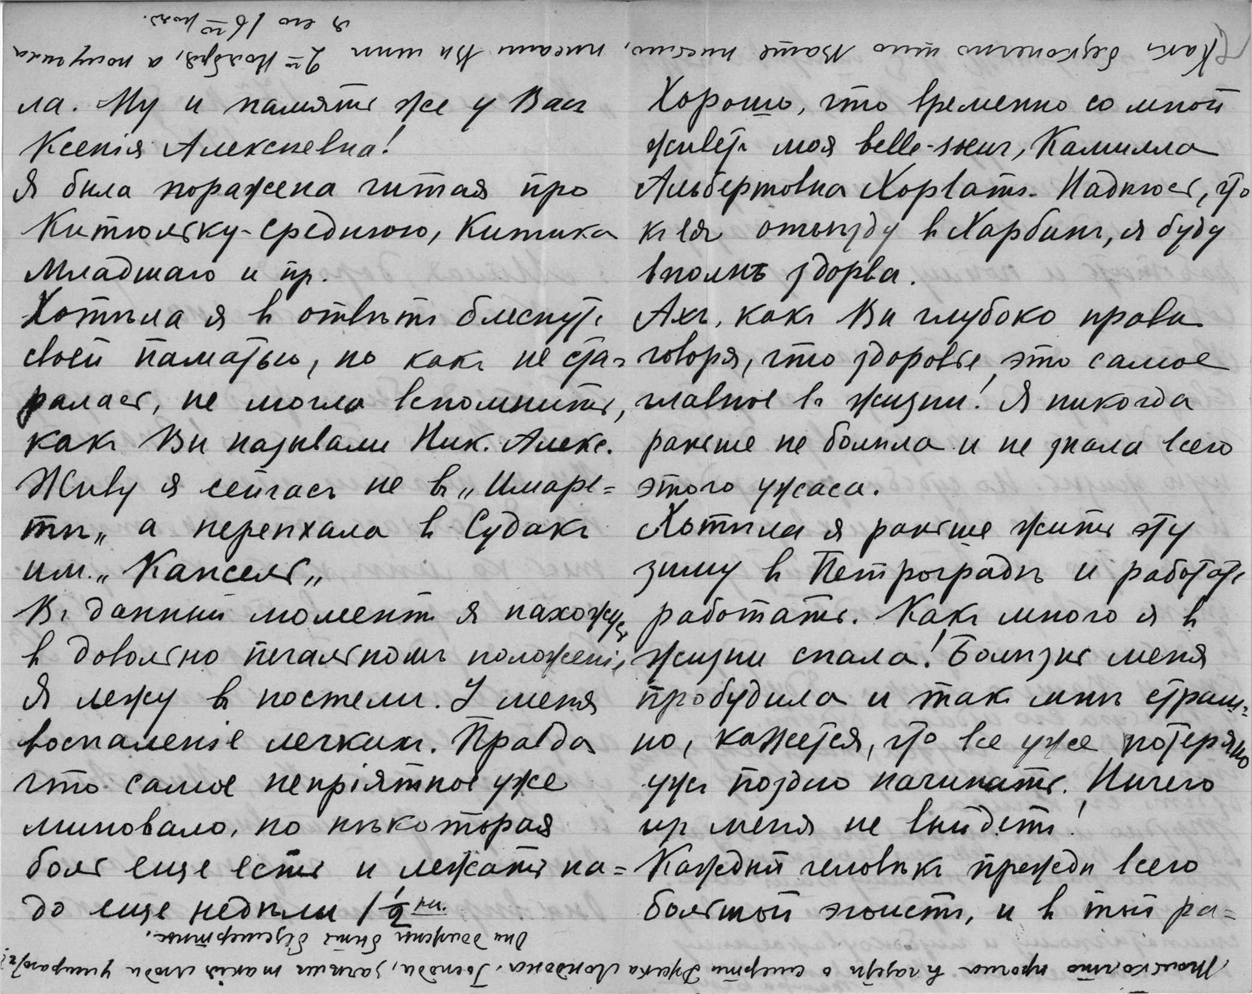 Какъ безконечно шло Ваше письмо, писали Вы мнѣ 2го Ноября, а получила
я его 16го
ла. Ну и память же у Васъ
Ксенія Алексѣевна!
Я была поражена читая про
Китюльку-среднюю, Китика
младшаго и пр.
Хотѣла я въ отвѣтъ блеснуть
своей памятью, но какъ не ста=
ралась, не могла вспомнить,
какъ Вы называли Ник. Алекс.
Живу я сейчасъ не въ „Имаре=
ти„ а переѣхала въ Судакъ
им. „Капсель„
Въ данный моментъ я нахожусь
въ довольно печальномъ положеніи,
Я лежу въ постели. У меня
воспаленіе легкихъ. Правда
что самое непріятное уже
миновало, но нѣкоторая
боль еще есть и лежать на=
до еще недѣли 1 1/2
Хорошо, что временно со мной
живетъ моя belle-soeur, Камилла
Альбертовна Хорватъ. Надѣюсь, что
къ ея отъѣзду въ Харбинъ, я буду
вполнѣ здорва.
Ахъ, какъ Вы глубоко права
говоря, что здоровье это самое
главное въ жизни! Я никогда
раньше не болѣла и не знала всего
этого ужаса.
Хотѣла я раньше жить эту
зиму въ Петроградѣ и работать
работать. Какъ много я въ
жизни спала! Болѣзнь меня
пробудила и такъ мнѣ страш=
но, кажется, что все уже потеряно
ужъ поздно начинать. Ничего
изъ меня не выйдетъ!
Каждый человѣкъ прежде всего
большой эгоистъ, и въ той ра=
прочла въ газетѣ о смерти Джека Лондона. Господи, зачѣмъ такіе люди умираютъ?
Они должны быть безсмертны.